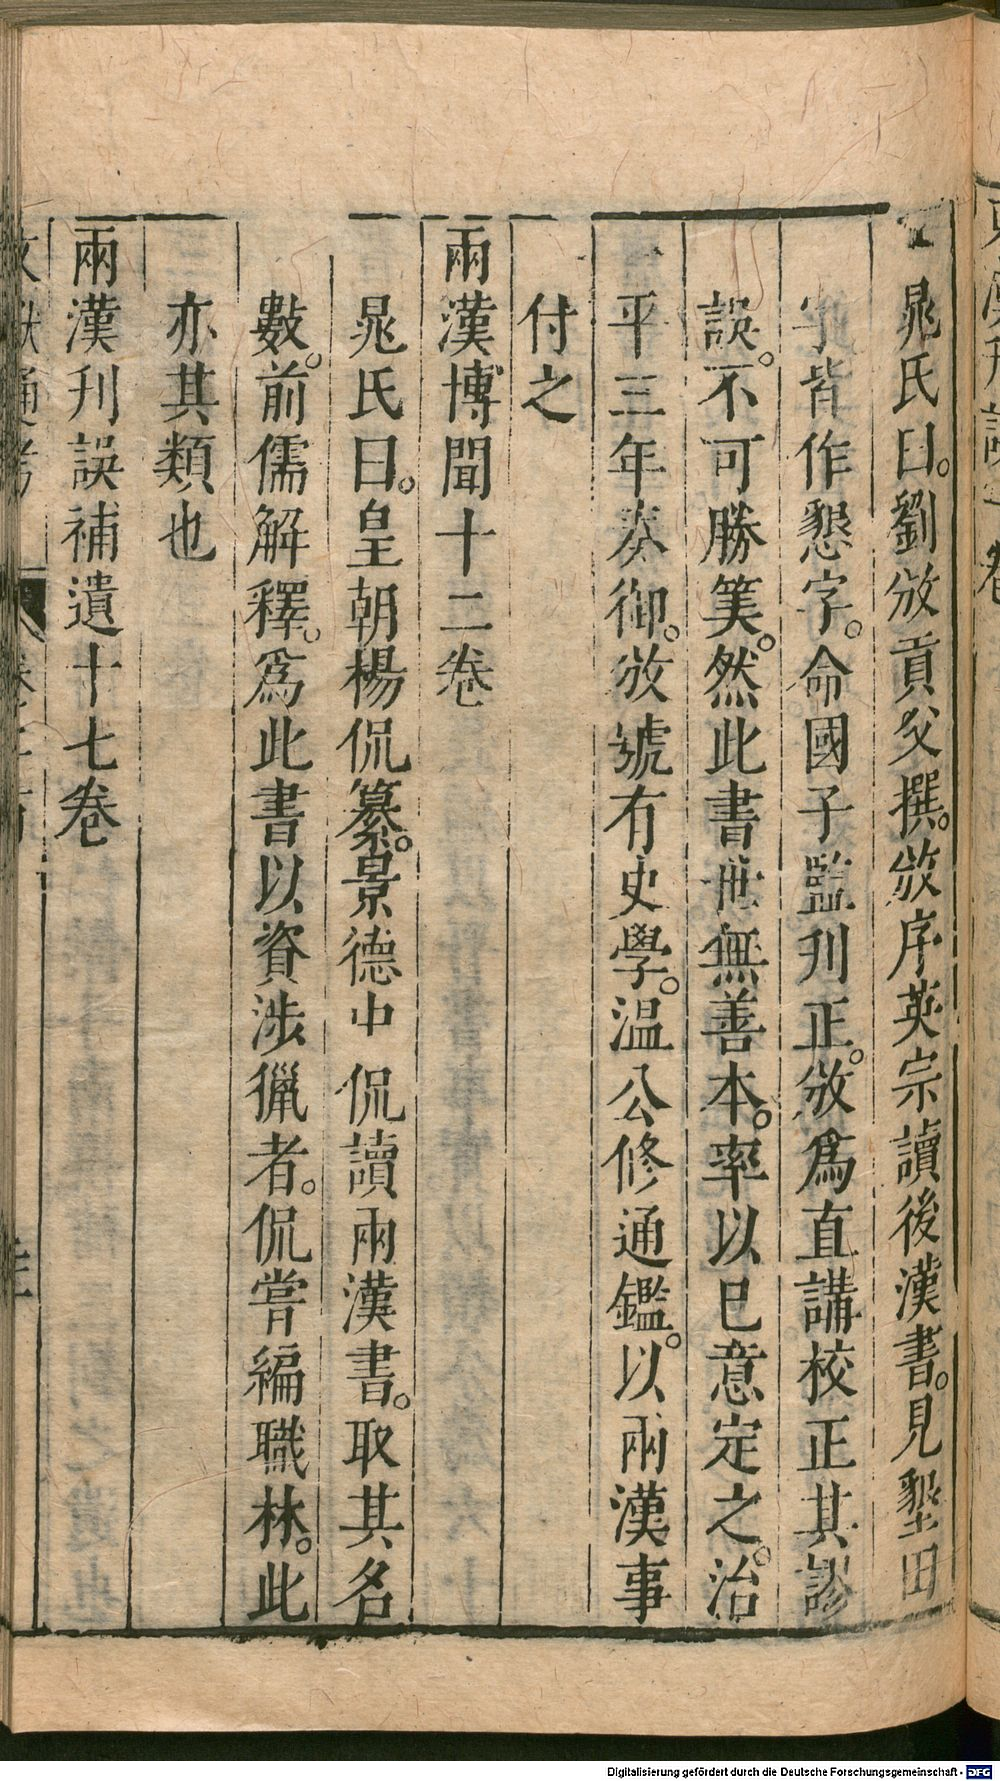 晁氏曰。劉攽貢父撰。攽序英宗讀後漢書。見墾田
字皆作懇字。命國子監刋正。攽爲直講校正其謬
誤。不可勝筭。然此書世無善本。率以已意定之。治
平三年奏御。攽號有史學。温公修通鑑。以兩漢事
付之
兩漢博聞十二卷
晁氏曰。皇朝楊侃纂。景德中侃讀兩漢書。取其名
數。前儒解釋。爲此書以資涉獵者。侃嘗編職林。此
亦其類也
兩漢刋誤補遺十七卷
Digitalisierung gefördert durch die Deutsche Forschungsgemeinschaft - DFG